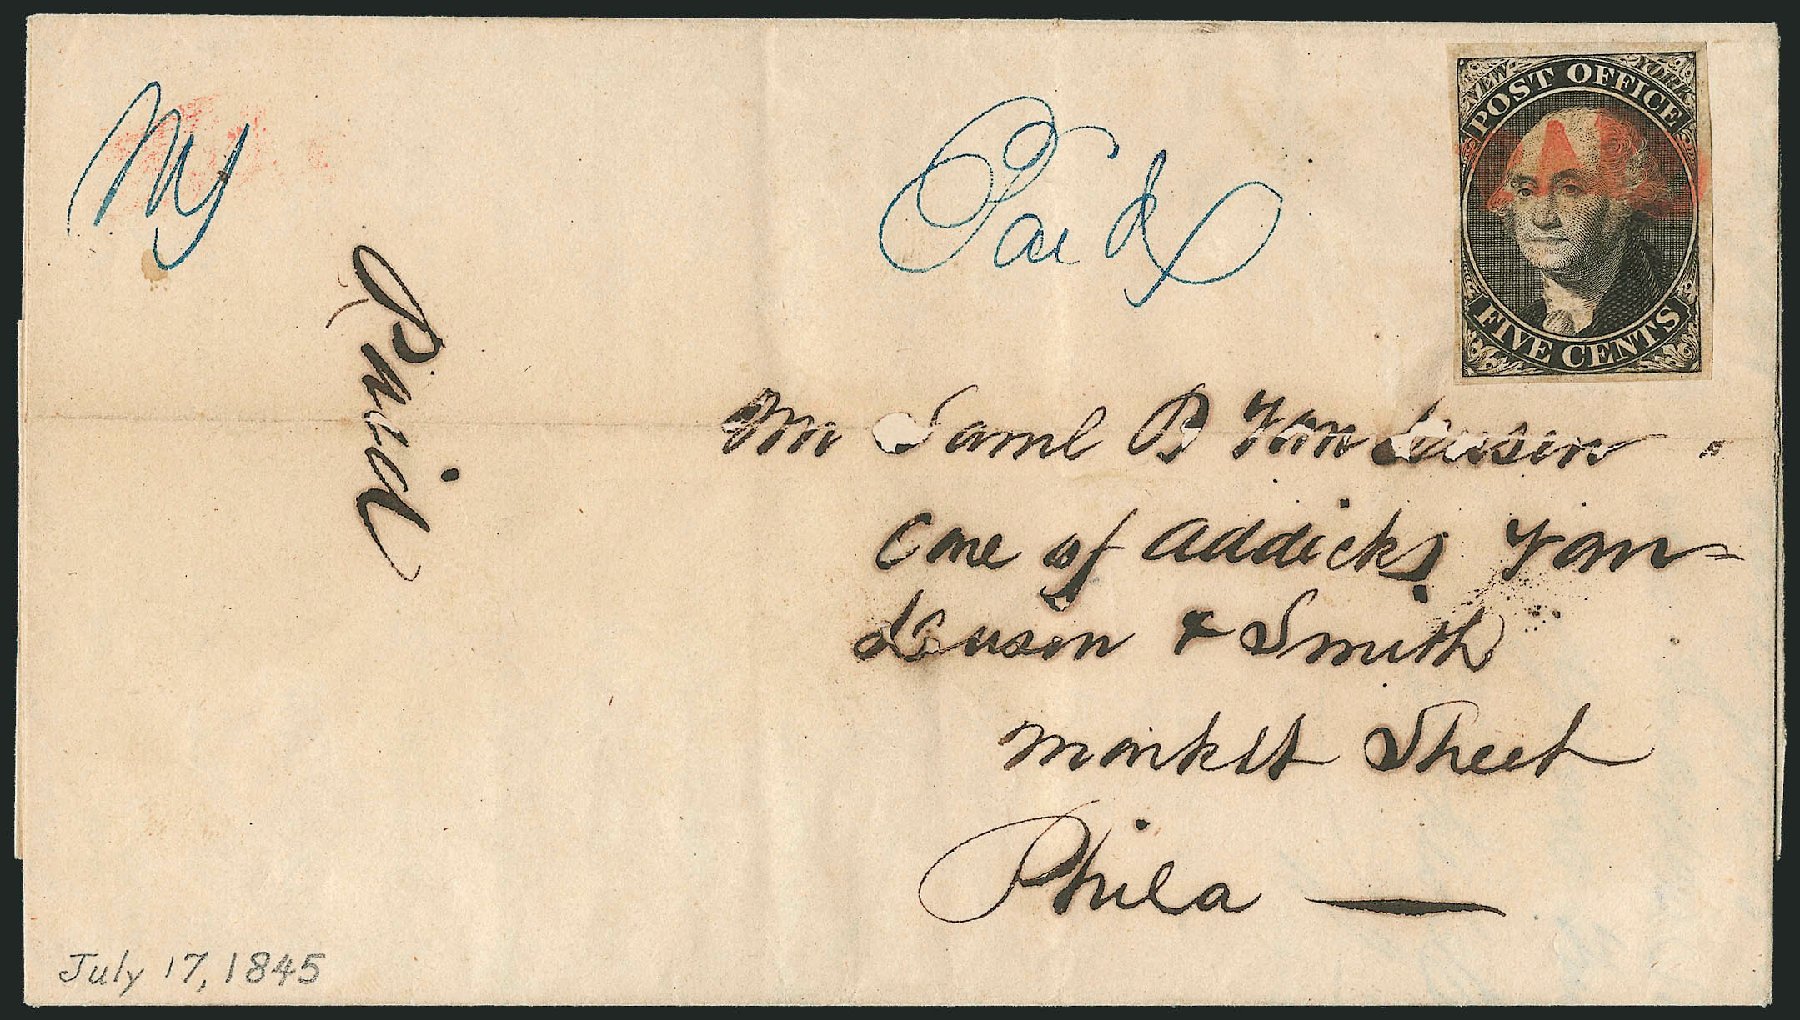 NY
Paid
NEW YORK
POST OFFICE
FIVE CENTS
PAID
Paid
Mr Saml B Van Dusen
Care of Addicks Van=
Dusen & Smith
Market Street
Phila —
July 17, 1845